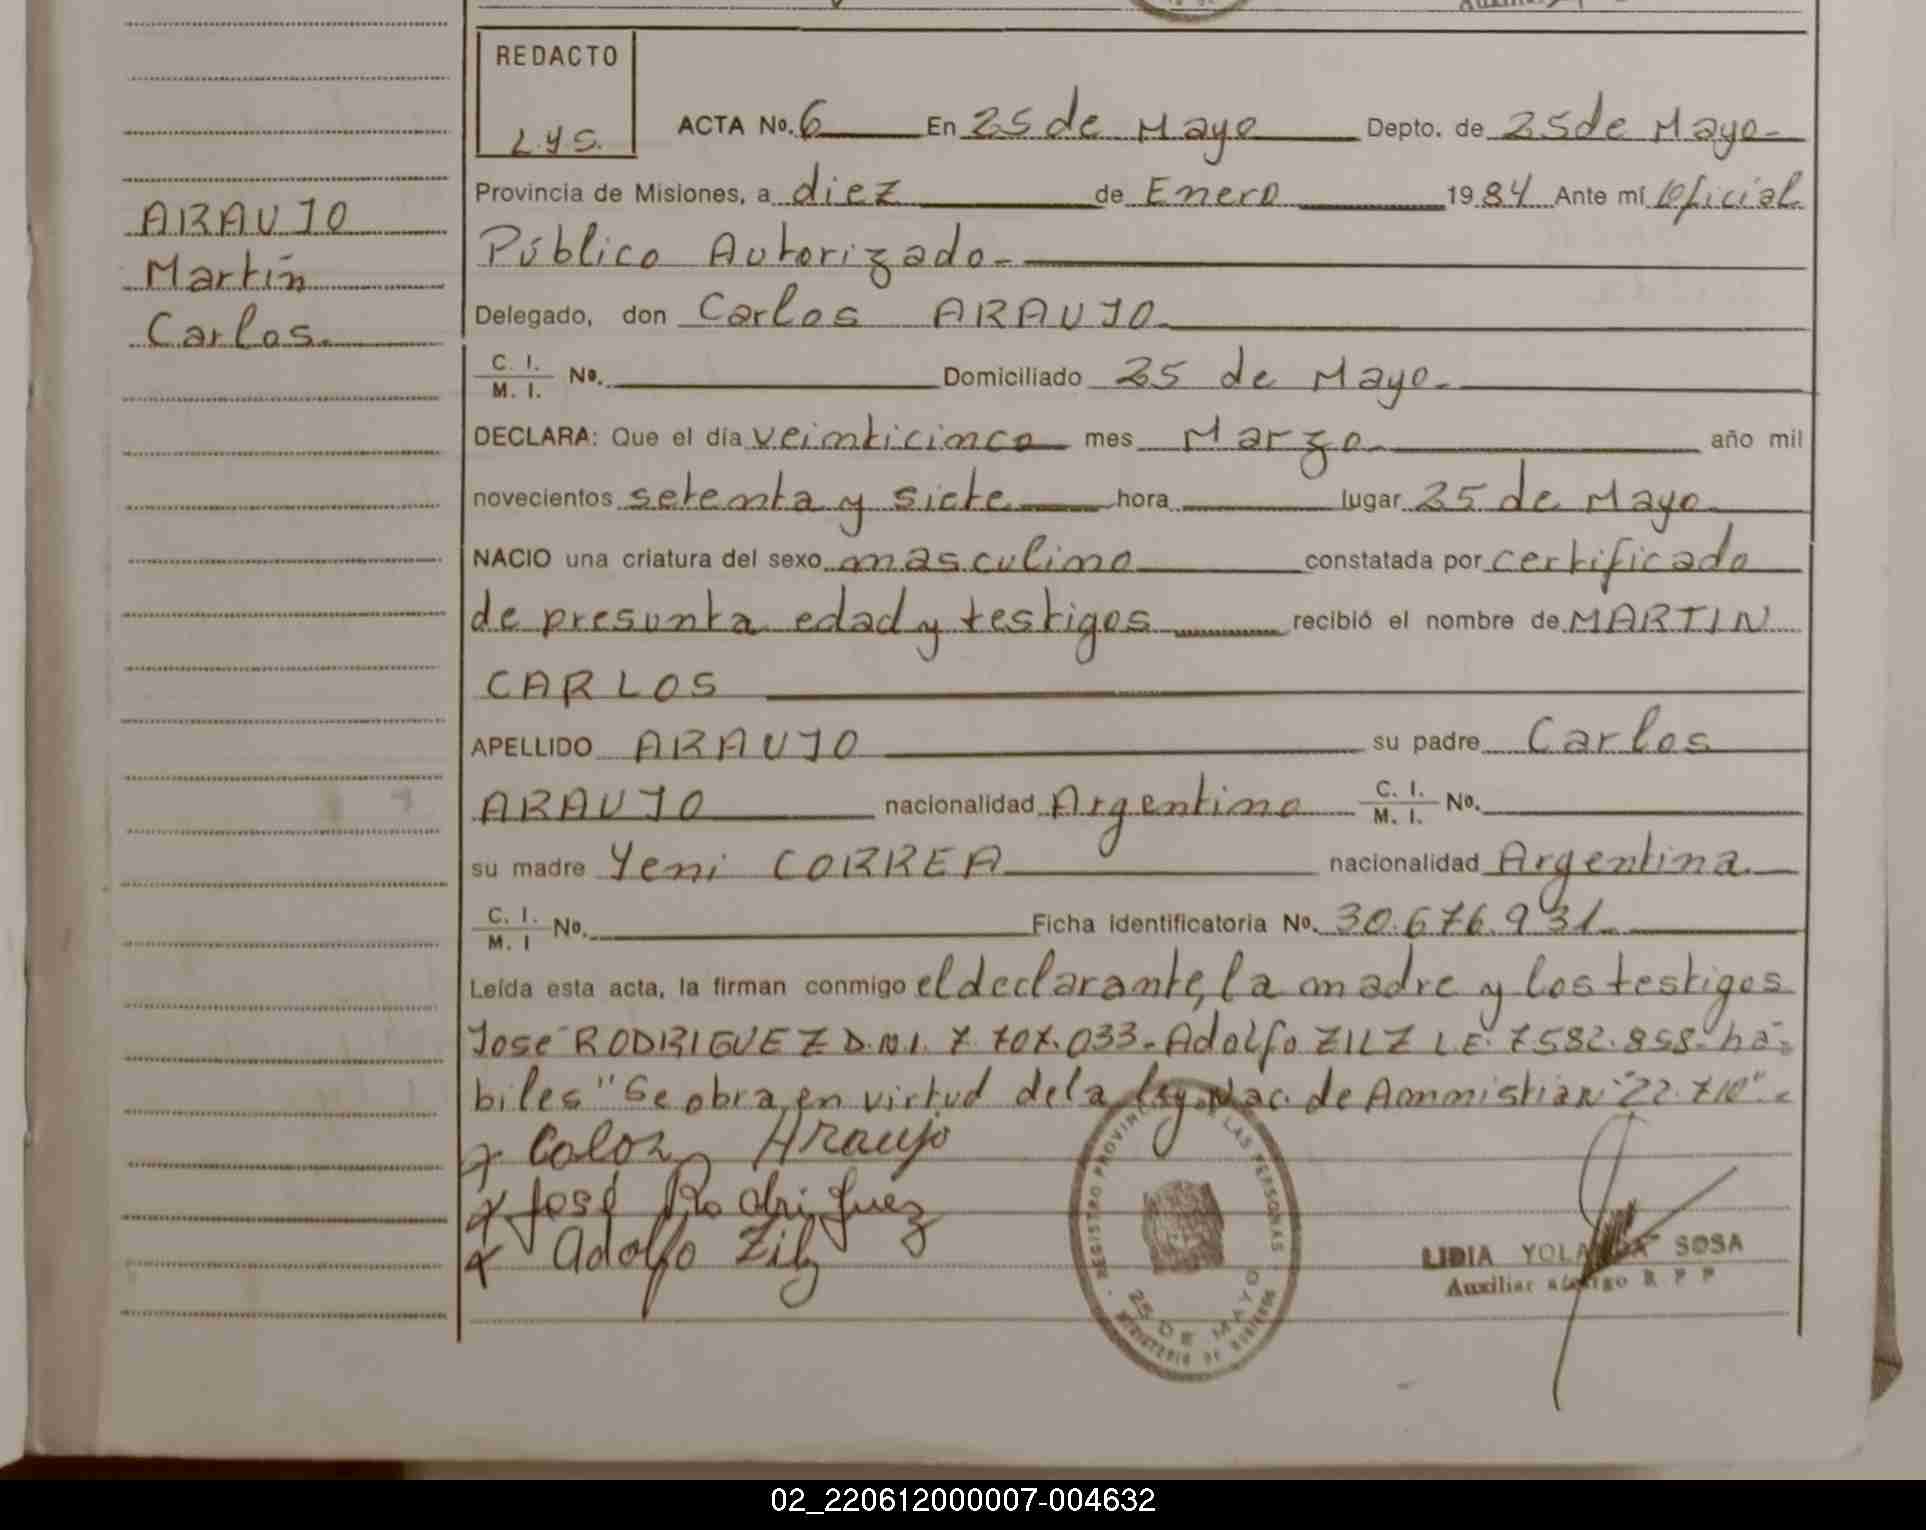 REDACTO
L.Y.S.
ACTA No. 6 En 25 de Mayo Depto. de 25 de Mayo-
Provincia de Misiones, a diez de Enero 1984 Ante mí Oficial
Público Autorizado-
Delegado, don Carlos ARAUJO
C. I. / M. I. No. Domiciliado 25 de Mayo-
DECLARA: Que el día veinticinco mes Marzo año mil
novecientos setenta y siete hora lugar 25 de Mayo
NACIO una criatura del sexo masculino constatada por certificado
de presunta edad y testigos recibió el nombre de MARTIN
CARLOS
APELLIDO ARAUJO su padre Carlos
ARAUJO nacionalidad Argentino C. I. / M. I. No.
su madre Yeni CORREA nacionalidad Argentina.
C. I. / M. I No. Ficha identificatoria No. 30.676.931
Leída esta acta, la firman conmigo el declarante, la madre y los testigos
José RODRIGUEZ D.N.I. 7.707.033- Adolfo ZILZ L.E. 7582.858- há-
biles "Se obra, en virtud de la ley. Nac. de Ammistian "22.710"-
Araujo
José Rodriguez
Adolfo Zilz
ARAUJO
Martín
Carlos
REGISTRO PROVINCIAL DE LAS PERSONAS
25 DE MAYO
MINISTERIO DE GOBIERNO
LIDIA YOLANDA SOSA
Auxiliar R P P
02_220612000007-004632